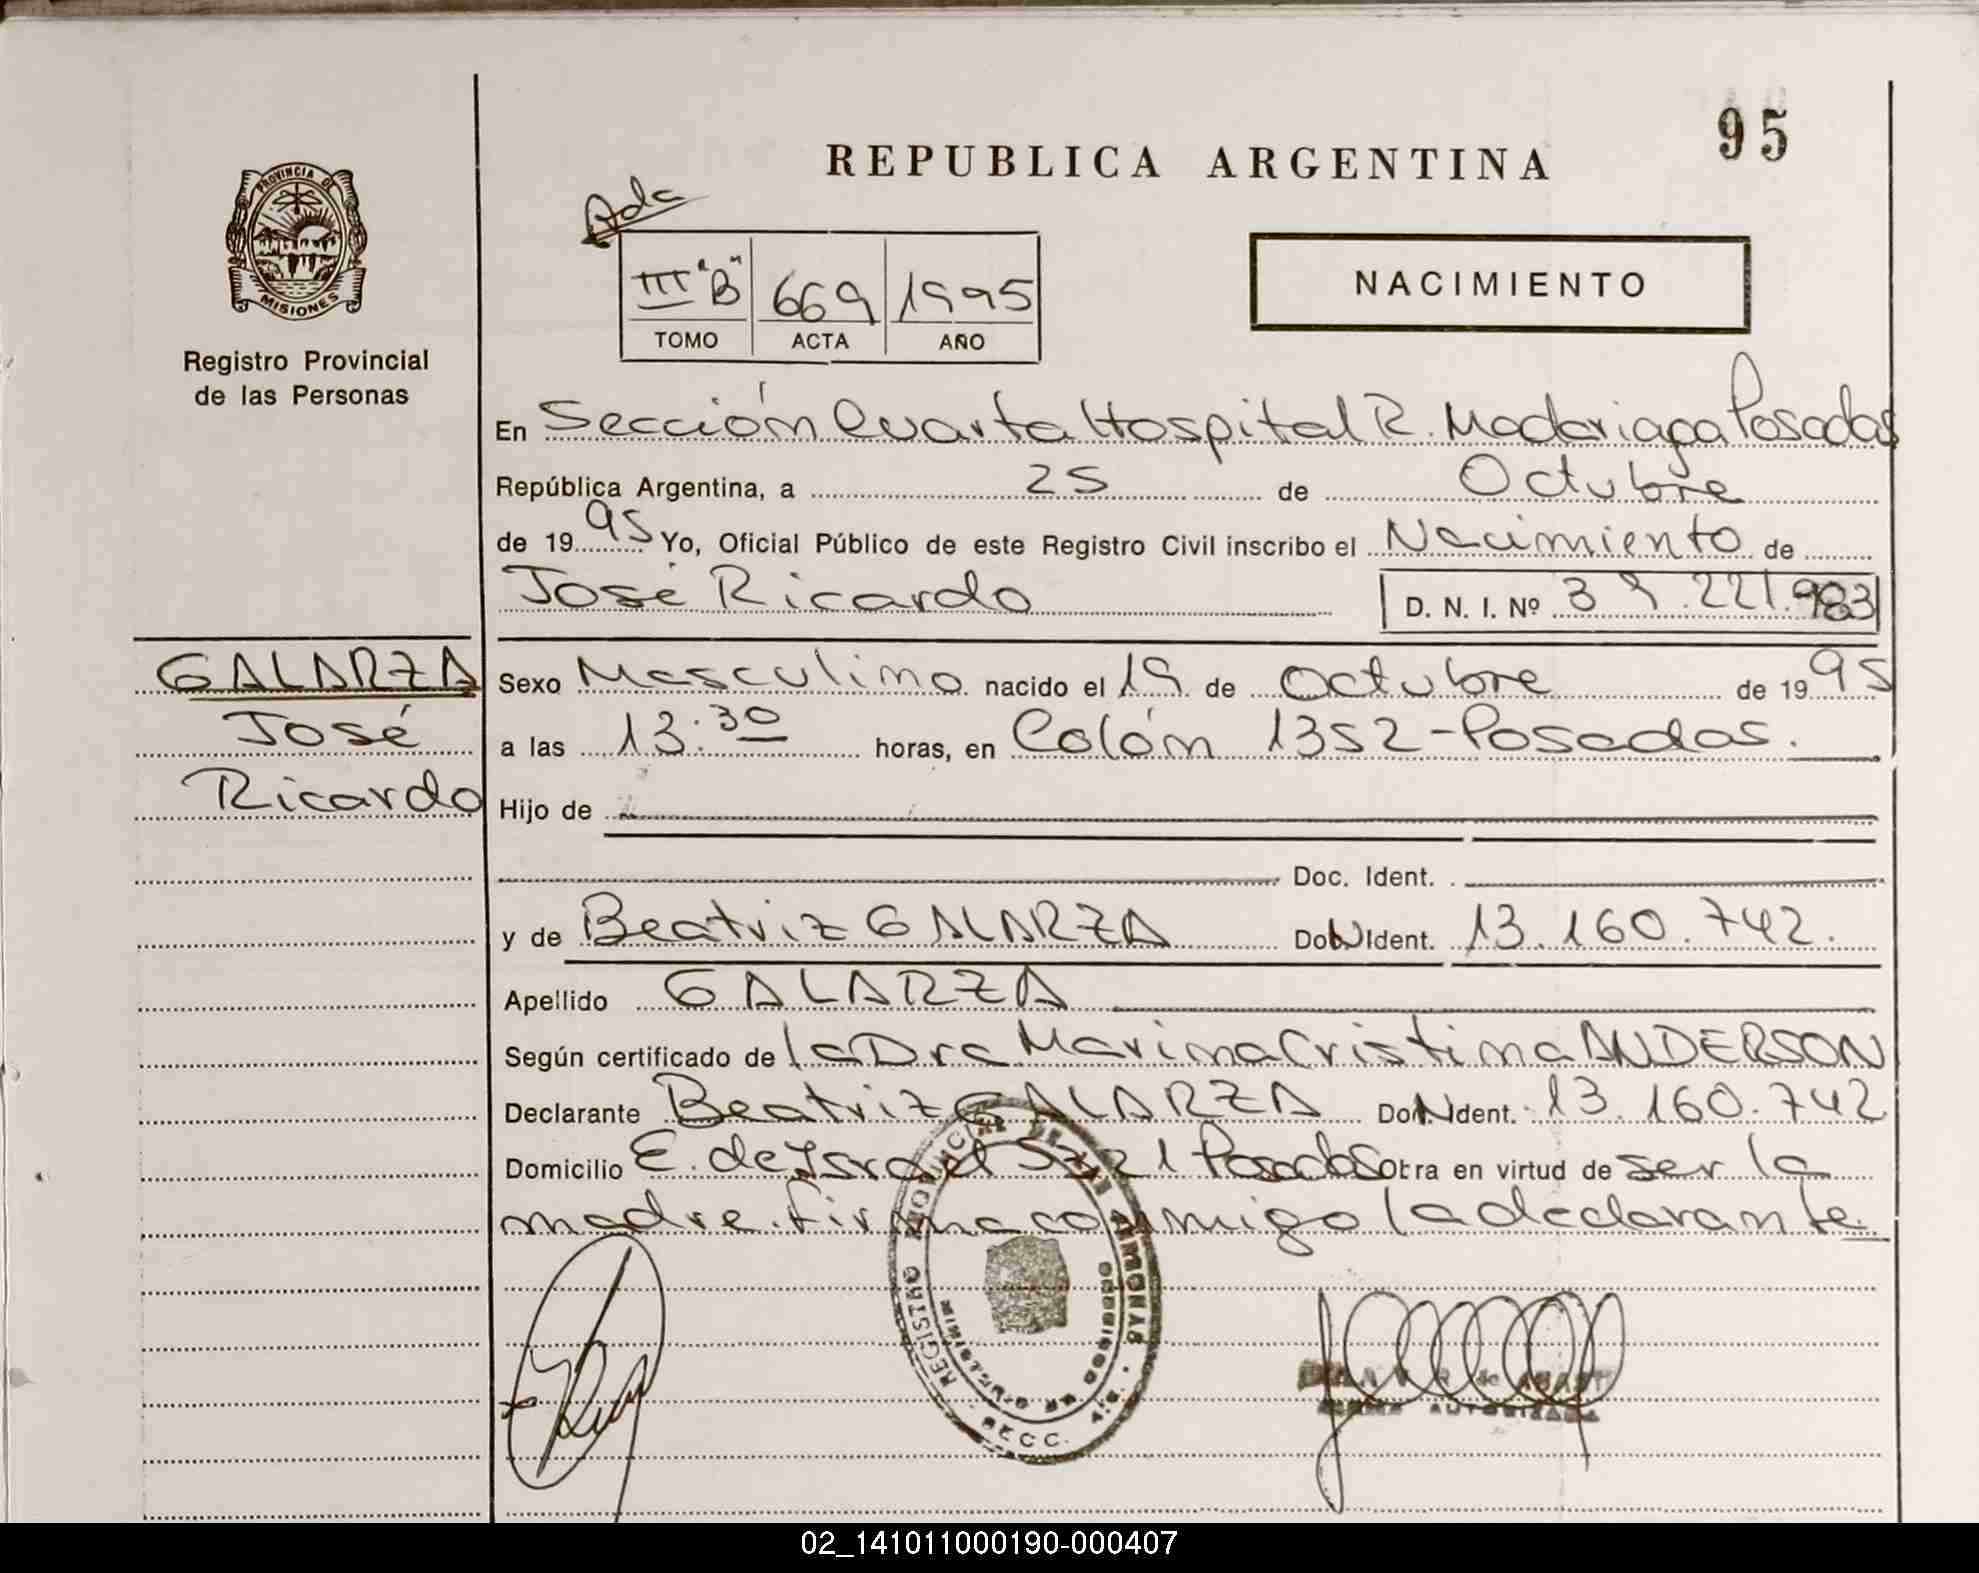 95
REPUBLICA ARGENTINA
PROVINCIA DE
MISIONES
Registro Provincial
de las Personas
III "B" 669 1995
TOMO ACTA AÑO
NACIMIENTO
En Sección Cuarta Hospital R. Madariaga Posadas
República Argentina, a 25 de Octubre
de 1995 Yo, Oficial Público de este Registro Civil inscribo el Nacimiento de
José Ricardo D. N. I. Nº 39.221.983
GALARZA
José
Ricardo
Sexo Masculino nacido el 19 de Octubre de 1995
a las 13:30 horas, en Colón 1352-Posadas.
Hijo de
Doc. Ident.
y de Beatriz GALARZA Ident. 13.160.742.
Apellido GALARZA
Según certificado de la Dra Marina Cristina ANDERSON
Declarante Beatriz GALARZA Ident. 13.160.742
Domicilio E. de Israel Posadas Obra en virtud de ser la
madre. firma conmigo la declarante.
REGISTRO PROVINCIAL DE LAS PERSONAS
SECC.
AUTORIZADA
02_141011000190-000407